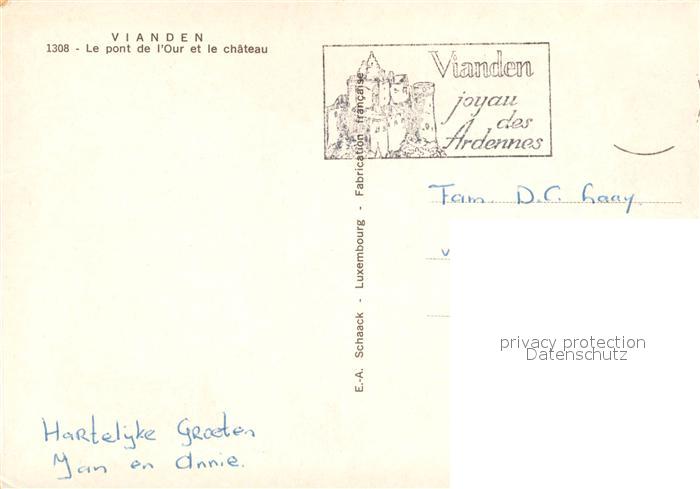 VIANDEN
1308 - Le pont de l'Our et le château
Vianden
joyau
des
Ardennes
E.-A. Schaack - Luxembourg - Fabrication française
Fam. D.C. Gaay.
v
privacy protection
Datenschutz
Hartelijke Groeten
Jan en Annie.